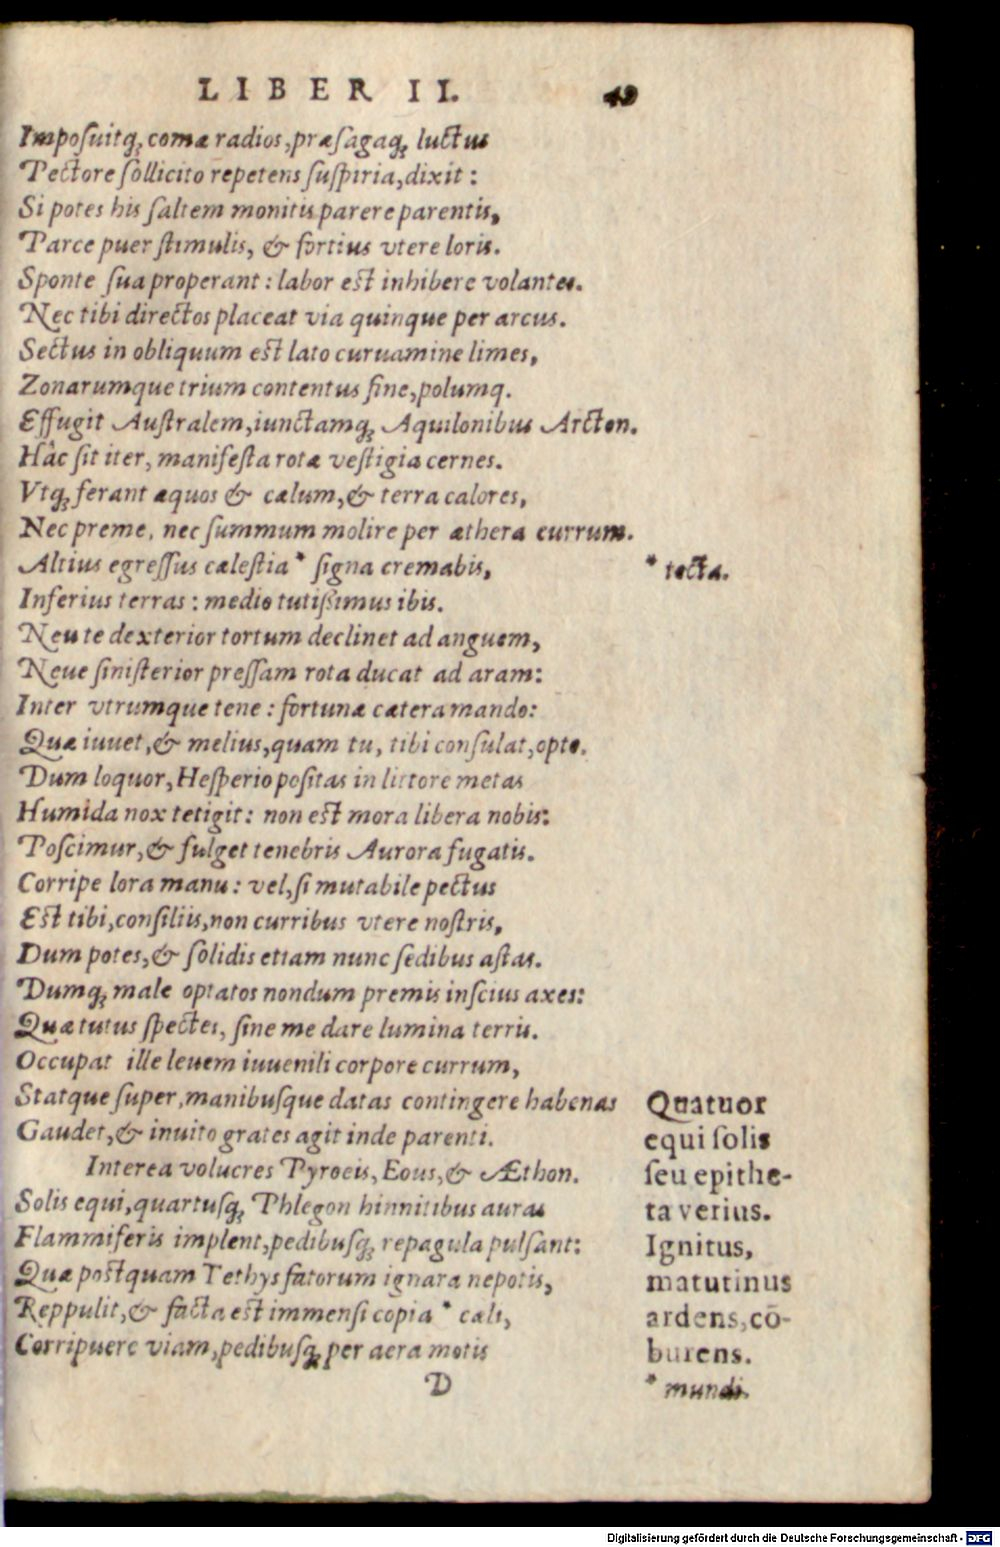 LIBER II. 49
Imposuitq́; comæ radios, præsagaq́; luctus
Pectore sollicito repetens suspiria, dixit:
Si potes his saltem monitis parere parentis,
Parce puer stimulis, & fortius vtere loris.
Sponte sua properant: labor est inhibere volantes.
Nec tibi directos placeat via quinque per arcus.
Sectus in obliquum est lato curuamine limes,
Zonarumque trium contentus fine, polumq.
Effugit Australem, iunctamq́; Aquilonibus Arcton.
Hâc sit iter, manifesta rotæ vestigia cernes.
Vtq́; ferant æquos & cælum, & terra calores,
Nec preme, nec summum molire per æthera currum.
Altius egressus cælestia * signa cremabis,
* tecta.
Inferius terras: medio tutißimus ibis.
Neu te dexterior tortum declinet ad anguem,
Neue sinisterior pressam rota ducat ad aram:
Inter vtrumque tene: fortunæ cætera mando:
Quæ iuuet, & melius, quam tu, tibi consulat, opto.
Dum loquor, Hesperio positas in littore metas
Humida nox tetigit: non est mora libera nobis:
Poscimur, & fulget tenebris Aurora fugatis.
Corripe lora manu: vel, si mutabile pectus
Est tibi, consiliis, non curribus vtere nostris,
Dum potes, & solidis etiam nunc sedibus astas.
Dumq́; male optatos nondum premis inscius axes:
Quæ tutus spectes, sine me dare lumina terris.
Occupat ille leuem iuuenili corpore currum,
Statque super, manibusque datas contingere habenas
Gaudet, & inuito grates agit inde parenti.
Interea volucres Pyroeis, Eous, & Æthon.
Solis equi, quartusq́; Phlegon hinnitibus auras
Flammiferis implent, pedibusq́; repagula pulsant:
Quæ postquam Tethys fatorum ignara nepotis,
Reppulit, & facta est immensi copia * cæli,
Corripuere viam, pedibusq́; per aera motis
Quatuor
equi solis
seu epithe-
ta verius.
Ignitus,
matutinus
ardens, cō-
burens.
* mundi.
D
Digitalisierung gefördert durch die Deutsche Forschungsgemeinschaft - DFG